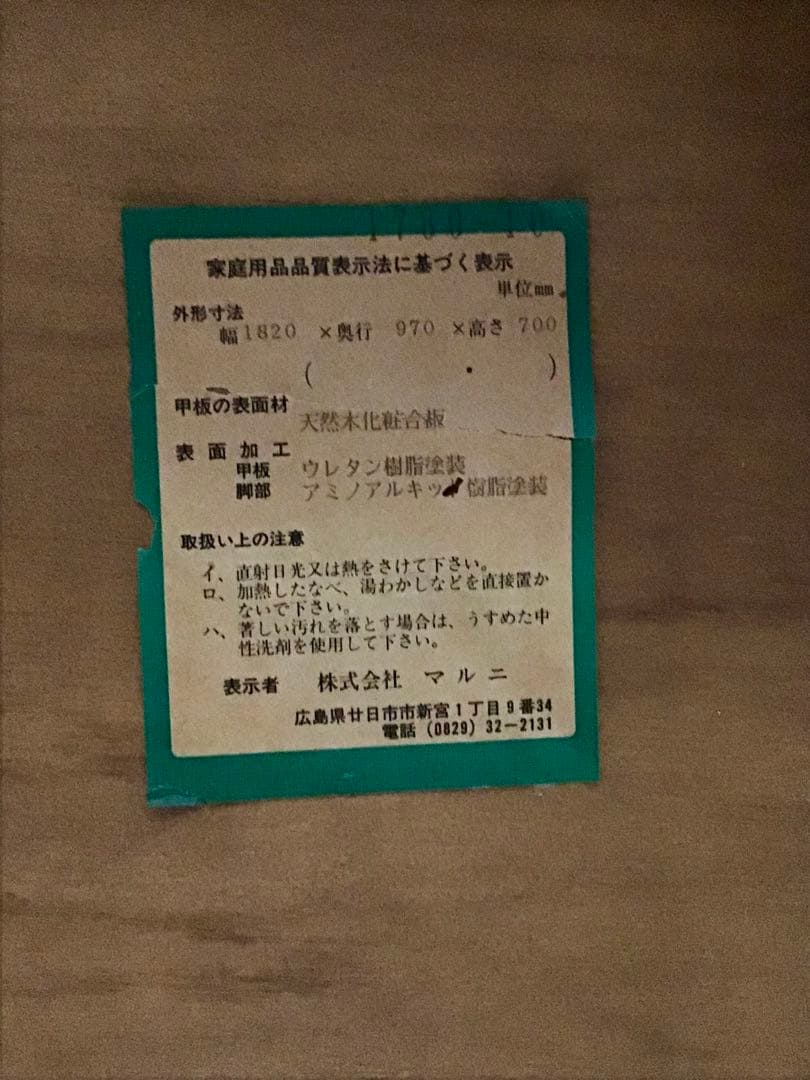 1760-10
家庭用品品質表示法に基づく表示
単位mm
外形寸法
幅1820 ×奥行 970 ×高さ 700
( ・ )
甲板の表面材
天然木化粧合板
表面加工
甲板 ウレタン樹脂塗装
脚部 アミノアルキッ 樹脂塗装
取扱い上の注意
イ、直射日光又は熱をさけて下さい。
ロ、加熱したなべ、湯わかしなどを直接置か
ないで下さい。
ハ、著しい汚れを落とす場合は、うすめた中
性洗剤を使用して下さい。
表示者 株式会社 マルニ
広島県廿日市市新宮1丁目9番34
電話 (0829) 32-2131